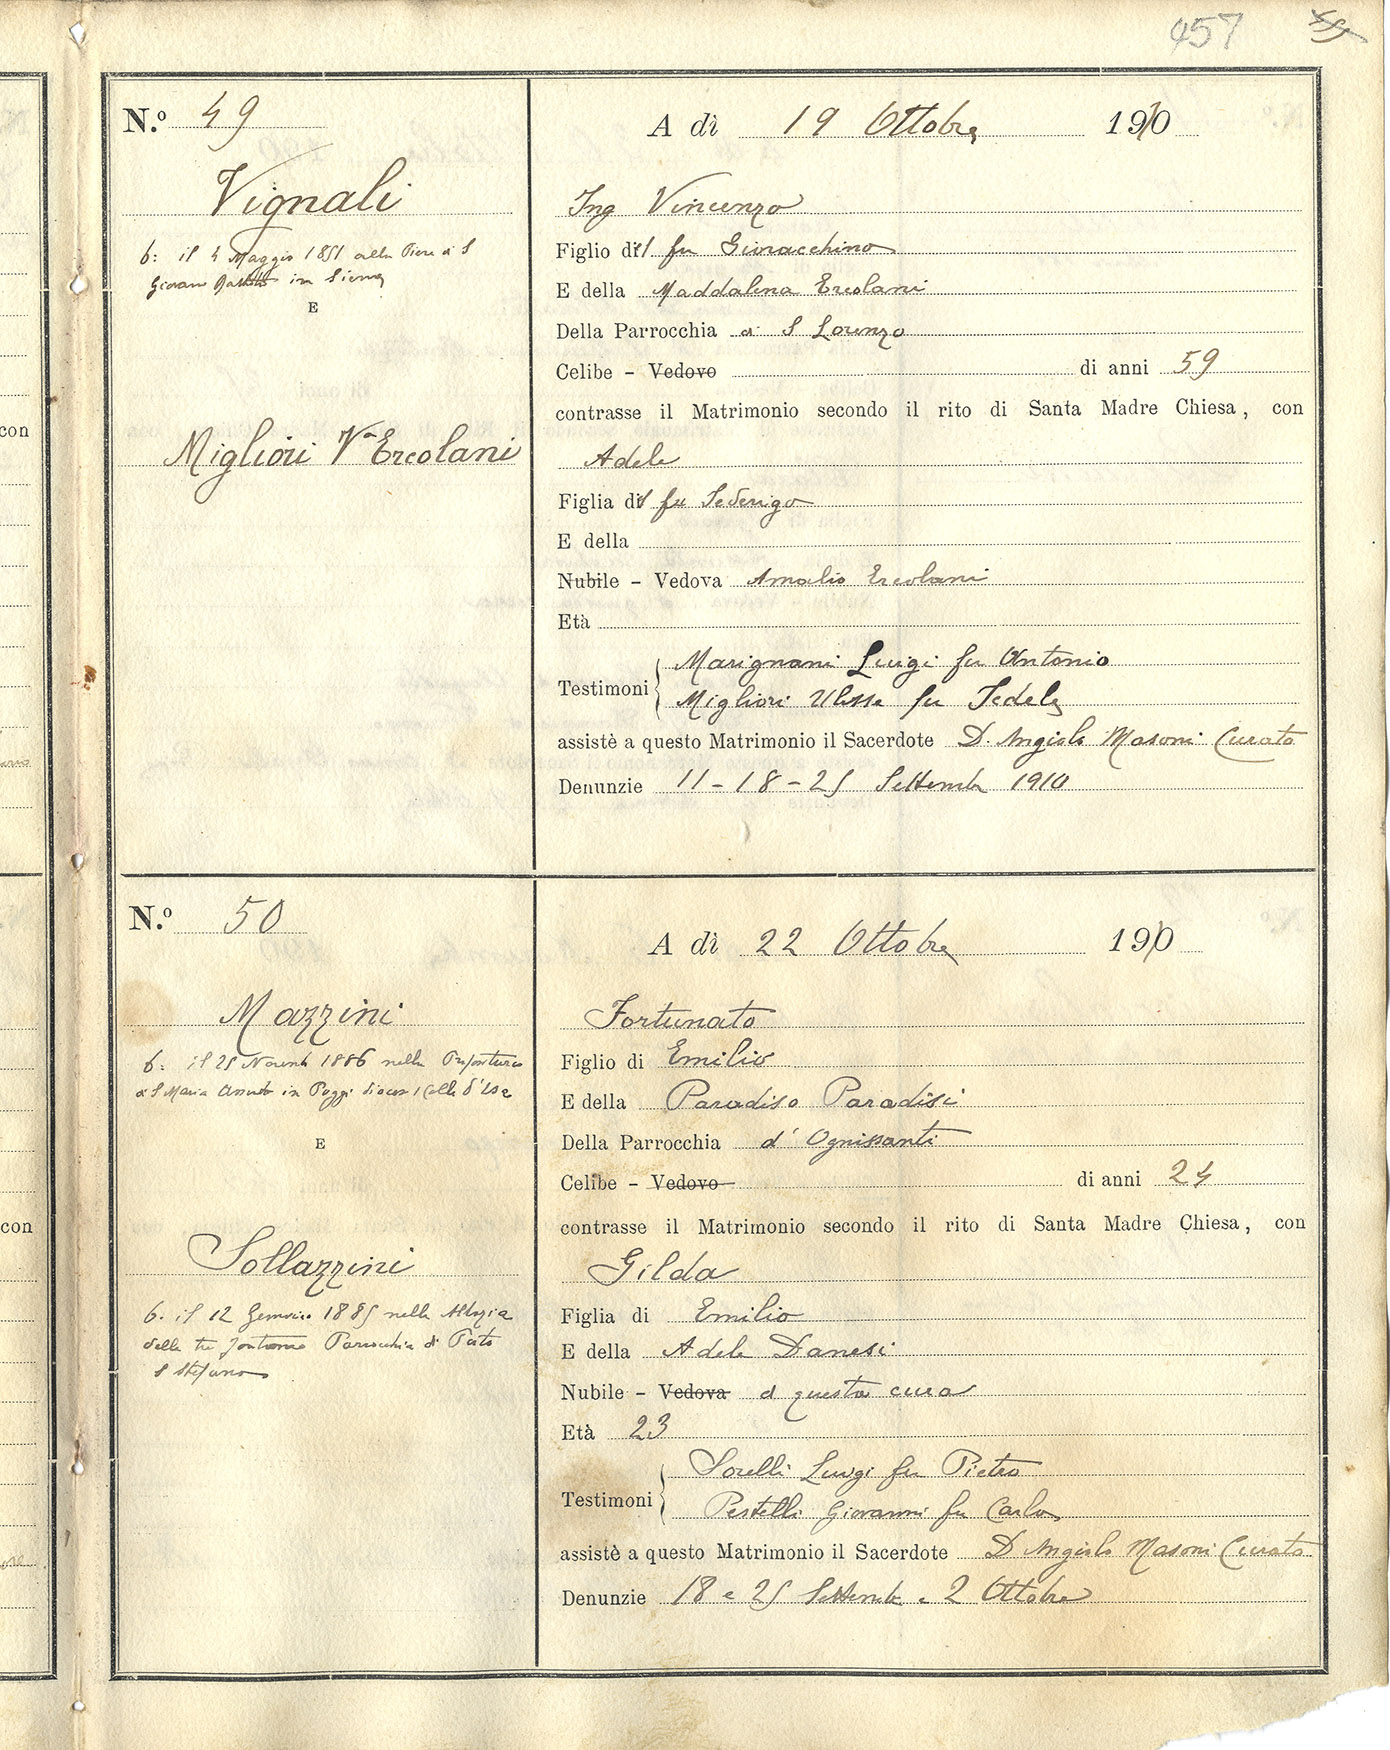 457
N.º 49
A dì 19 Ottobre 1910
Vignali
Ing Vincenzo
b: il 4 Maggio 1851 alla Pieve di S
Giovanni Battista in Siena
Figlio del fu Gioacchino
E della Maddalena Ercolani
E
Della Parrocchia di S Lorenzo
Celibe - Vedovo di anni 59
contrasse il Matrimonio secondo il rito di Santa Madre Chiesa, con
Migliori Vª Ercolani
Adele
Figlia del fu Federigo
E della
Nubile - Vedova Amalio Ercolani
Età
Testimoni Marignani Luigi fu Antonio
Migliori Ulisse fu Fedele
assistè a questo Matrimonio il Sacerdote D. Angiolo Masoni Curato
Denunzie 11 - 18 - 25 Settembre 1910
N.º 50
A dì 22 Ottobre 1910
Mazzini
Fortunato
b: il 25 Novemb 1886 nella Prepositura
di S Maria Assunta in Poggi diocesi Colle d'Elsa
Figlio di Emilio
E della Paradisa Paradisi
E
Della Parrocchia d'Ognissanti
Celibe - Vedovo di anni 24
contrasse il Matrimonio secondo il rito di Santa Madre Chiesa, con
Sollazzini
Gilda
b. il 12 Gennaio 1885 nella
delle tre fontane Parrocchia di
S Stefano
Figlia di Emilio
E della Adele Danesi
Nubile - Vedova di questa cura
Età 23
Testimoni Sorelli Luigi fu Pietro
Pestelli Giovanni fu Carlo
assistè a questo Matrimonio il Sacerdote D Angiolo Masoni Curato
Denunzie 18 e 25 Settembre e 2 Ottobre
con
con